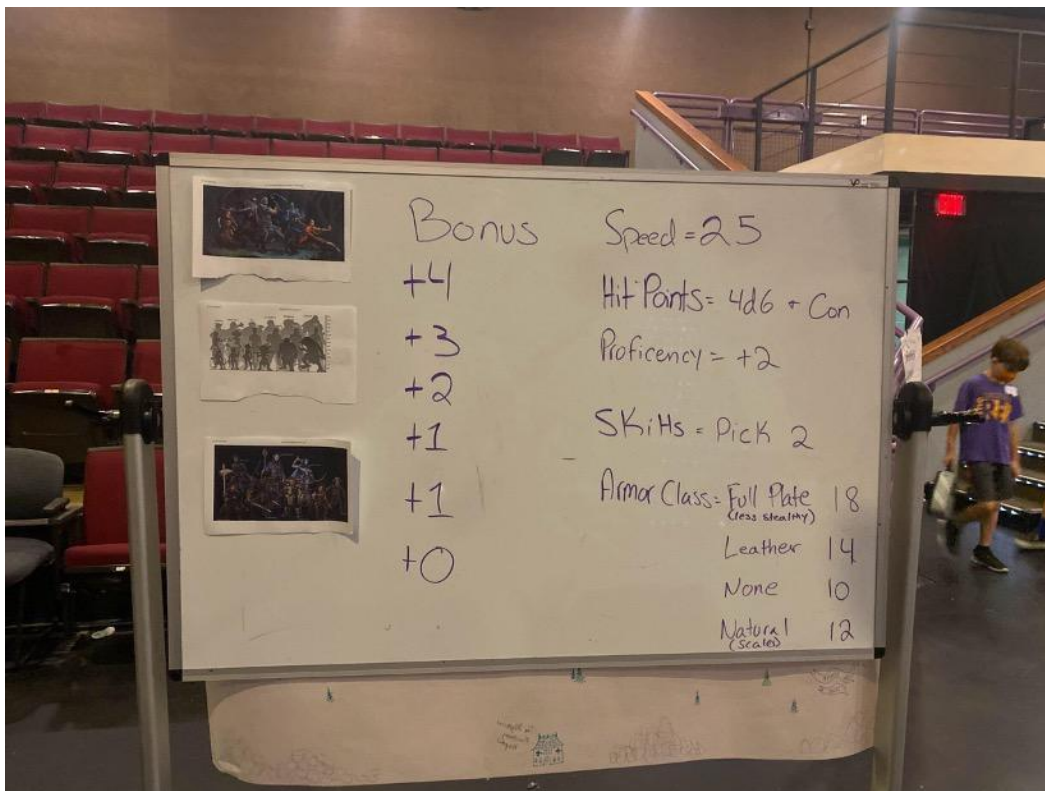 Bonus
+4
+3
+2
+1
+1
+0
Speed = 25
Hit Points = 4d6 + Con
Proficency = +2
Skills = Pick 2
Armor Class = Full Plate 18
(less stealthy)
Leather 14
None 10
Natural 12
(scales)